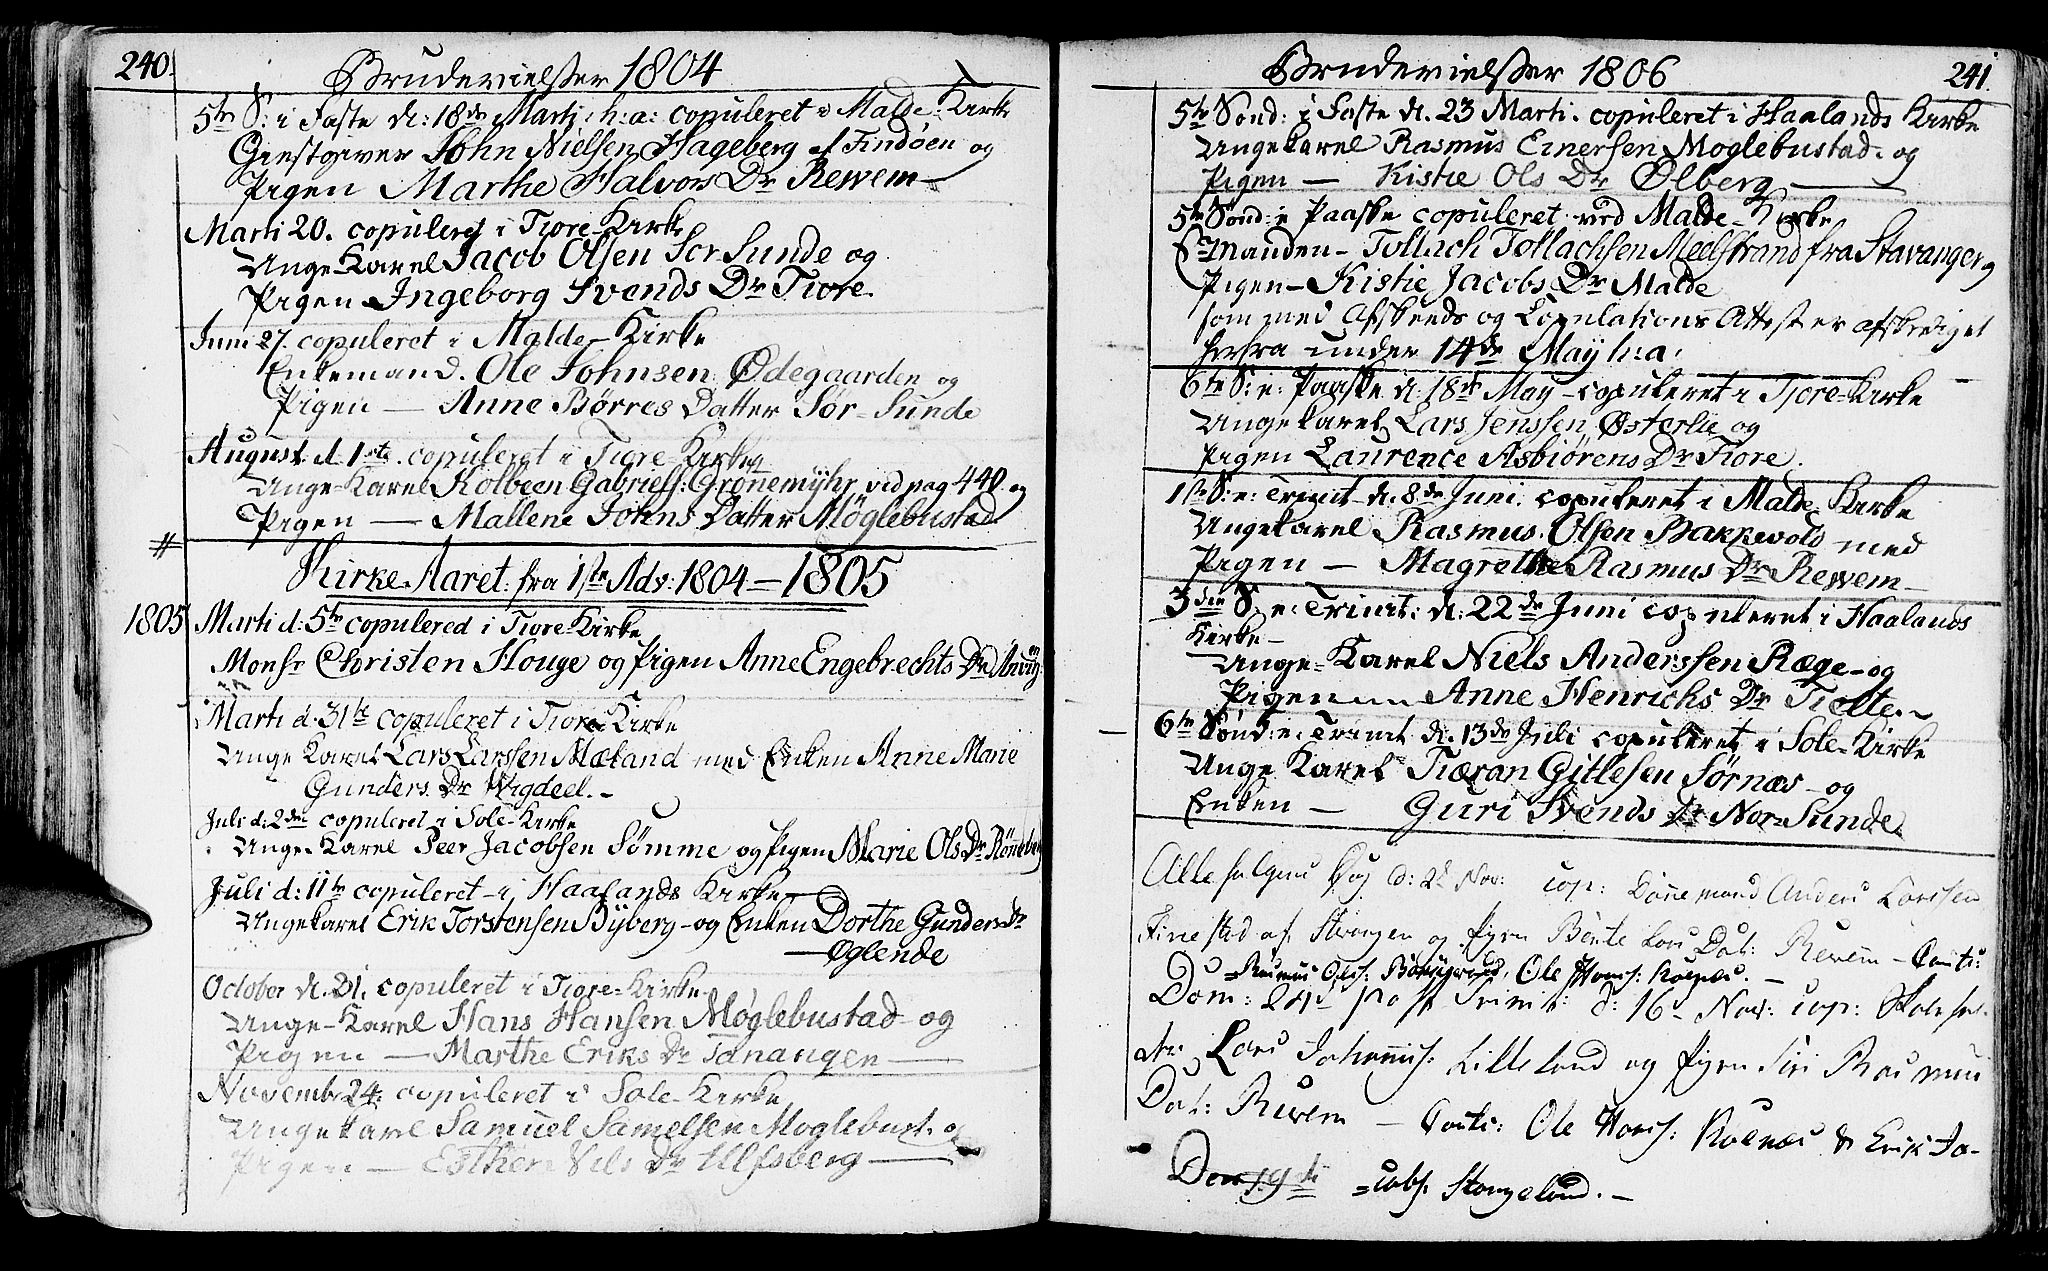 240.
Brudevielsser 1804
5te S: i Faste d: 18de Marti h: a: copuleret i Malde-Kirke
Giestgiver John Nielsen Hageberg af Findöen og
Pigen Marthe Halvors Dr Rewem
Marti 20. copuleret i Tiore-Kirke
Unge-Karel Jacob Olsen Sør-Sunde og
Pigen Ingeborg Svends Dr Tiore
Juni 27. copuleret i Malde-Kirke
Enkemand. Ole Johnsen Ødegaarden og
Pigen — Anne Børres Datter Sør-Sunde
August d. 1ste copuleret i Tiore-Kirke
Unge-Karel Kolbeen Gabriels: Grönemÿhr vid pag 440. og
Pigen — Mallene Johns Datter Møglebustad
Kirke-Aaret fra 1ste Adv: 1804 — 1805
1805
Marti d: 5te copulered i Tiore-Kirke
Monsr Christen Houge og Pigen Anne Engebrechts Dr
Marti d. 31te copuleret i Tiore Kirke
Unge Karel Lars Larssen Mæland med Enken Anne Marie
Gunders Dr Wigdeel. -
Juli d: 2den copuleret i Sole-Kirke
Unge-Karel Peer Jacobsen Sömme og Pigen Marie Ols Dr Rönneberg
Juli d: 11te copuleret i Haalands Kirke
Ungekarel Erik Torstensen Bÿberg - og Enken Dorthe Gunders Dr
— Oglende
October d. 31. copuleret i Tiore-Kirke
Unge-Karel Hans Hansen Møglebustad og
Pigen — Marthe Eriks Dr Tanangen —
Novembr 24. copuleret i Sole-Kirke
Ungekarl Samuel Samelsen Moglebust. og
Pigen — Esther Nils Dr Ulfsberg —
241.
Brudevielsser 1806
5te Sond: i Faste d. 23 Marti. copuleret i Haalands Kirke
Ungekarel Rasmus Einersen Moglebustad. og
Pigen — Kistie Ols Dr Ølberg —
5te Sønd: e Paaske copuleret ved Malde-Kirke
manden - Tollach Tollachsen Meelstrand fra Stavanger og
Pigen - Kistie Jacobs Dr Malde
som med Afskeeds og Copulations Attest er afskediget
herfra under 14de Maÿ h: a:
6te S: e: Paaske d. 18de May - copuleret i Tjore-Kirke
Ungekarel Lars Jenssen Østerlie og
Pigen Laurence Asbiørens Dr Tiore.
1ste S: e: Trinit d. 8de Juni. copuleret i Malde Kirke
Ungekarel Rasmus. Olsen Bakkevold med
Pigen — Magrethe Rasmus Dr Rewem -
3die S. e: Trinit: d: 22de Juni copuleret i Haalands
Kirke -
Unge-Karel Niels Anderssen Ræge - og
Pigen Anne Henrichs Dr Tielte
6te Sönd: e: Trinit d. 13de Juli copuleret i Sole-Kirke
Unge Karel Tiæran Gitlesen Sørnæs - og
Enken — Guri Svends Dr Nor-Sunde.
Alle helgens Dag d: 2d Nov: cop: Dannemand Anders Larssen
Finestad af og Pigen Bente Lars Dat: Rewem -
Rasmus Ols: Ole Hans:
Dom: 24d post Trinit: d: 16 Nov: cop:
Lars Johannis: Lilleland og Pigen Siri Rasmus
Dat: Rewem — Ole Hans: & Erik Ja-
Den 19de =cobs: Stangeland. -